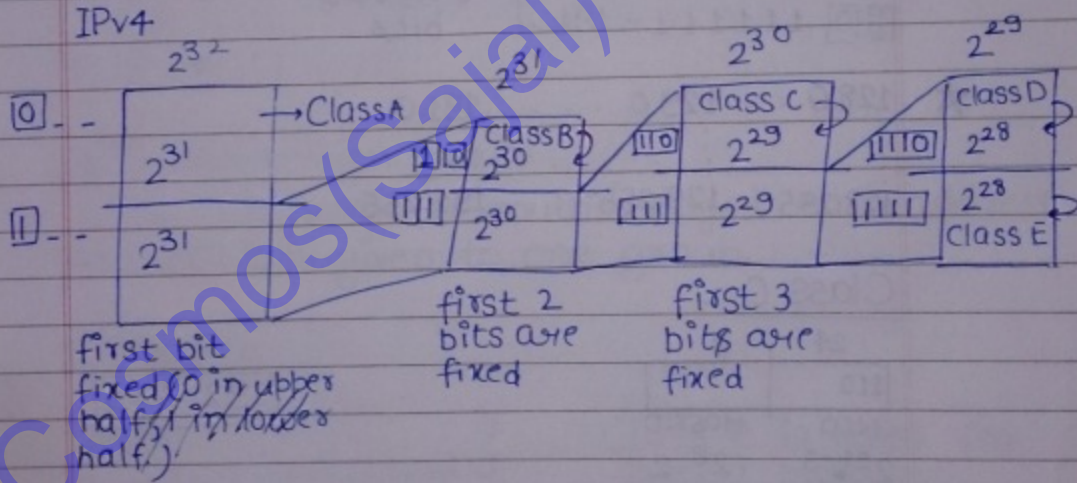 IPv4
2^32
2^31
2^30
2^29
0 - -
→ Class A
2^31
1 0
Class B
2^30
110
Class C
2^29
1110
Class D
2^28
1 - -
2^31
11
2^30
111
2^29
1111
2^28
Class E
first bit
fixed (0 in upper
half, 1 in lower
half)
first 2
bits are
fixed
first 3
bits are
fixed
Cosmos(Sajal)